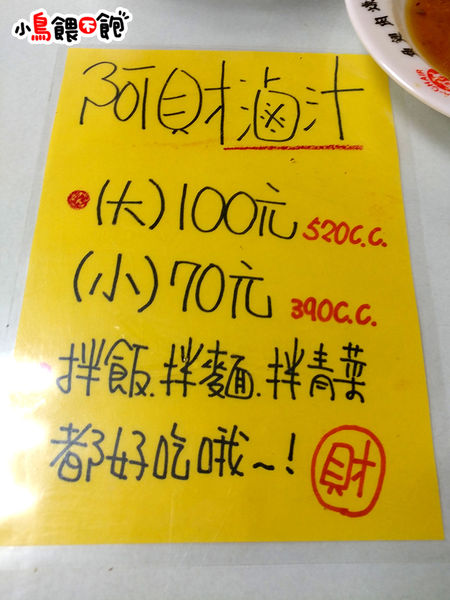 小鳥餵不飽
阿財滷汁
(大)100元 520C.C.
(小)70元 390C.C.
拌飯.拌麵.拌青菜
都好吃哦~!
財